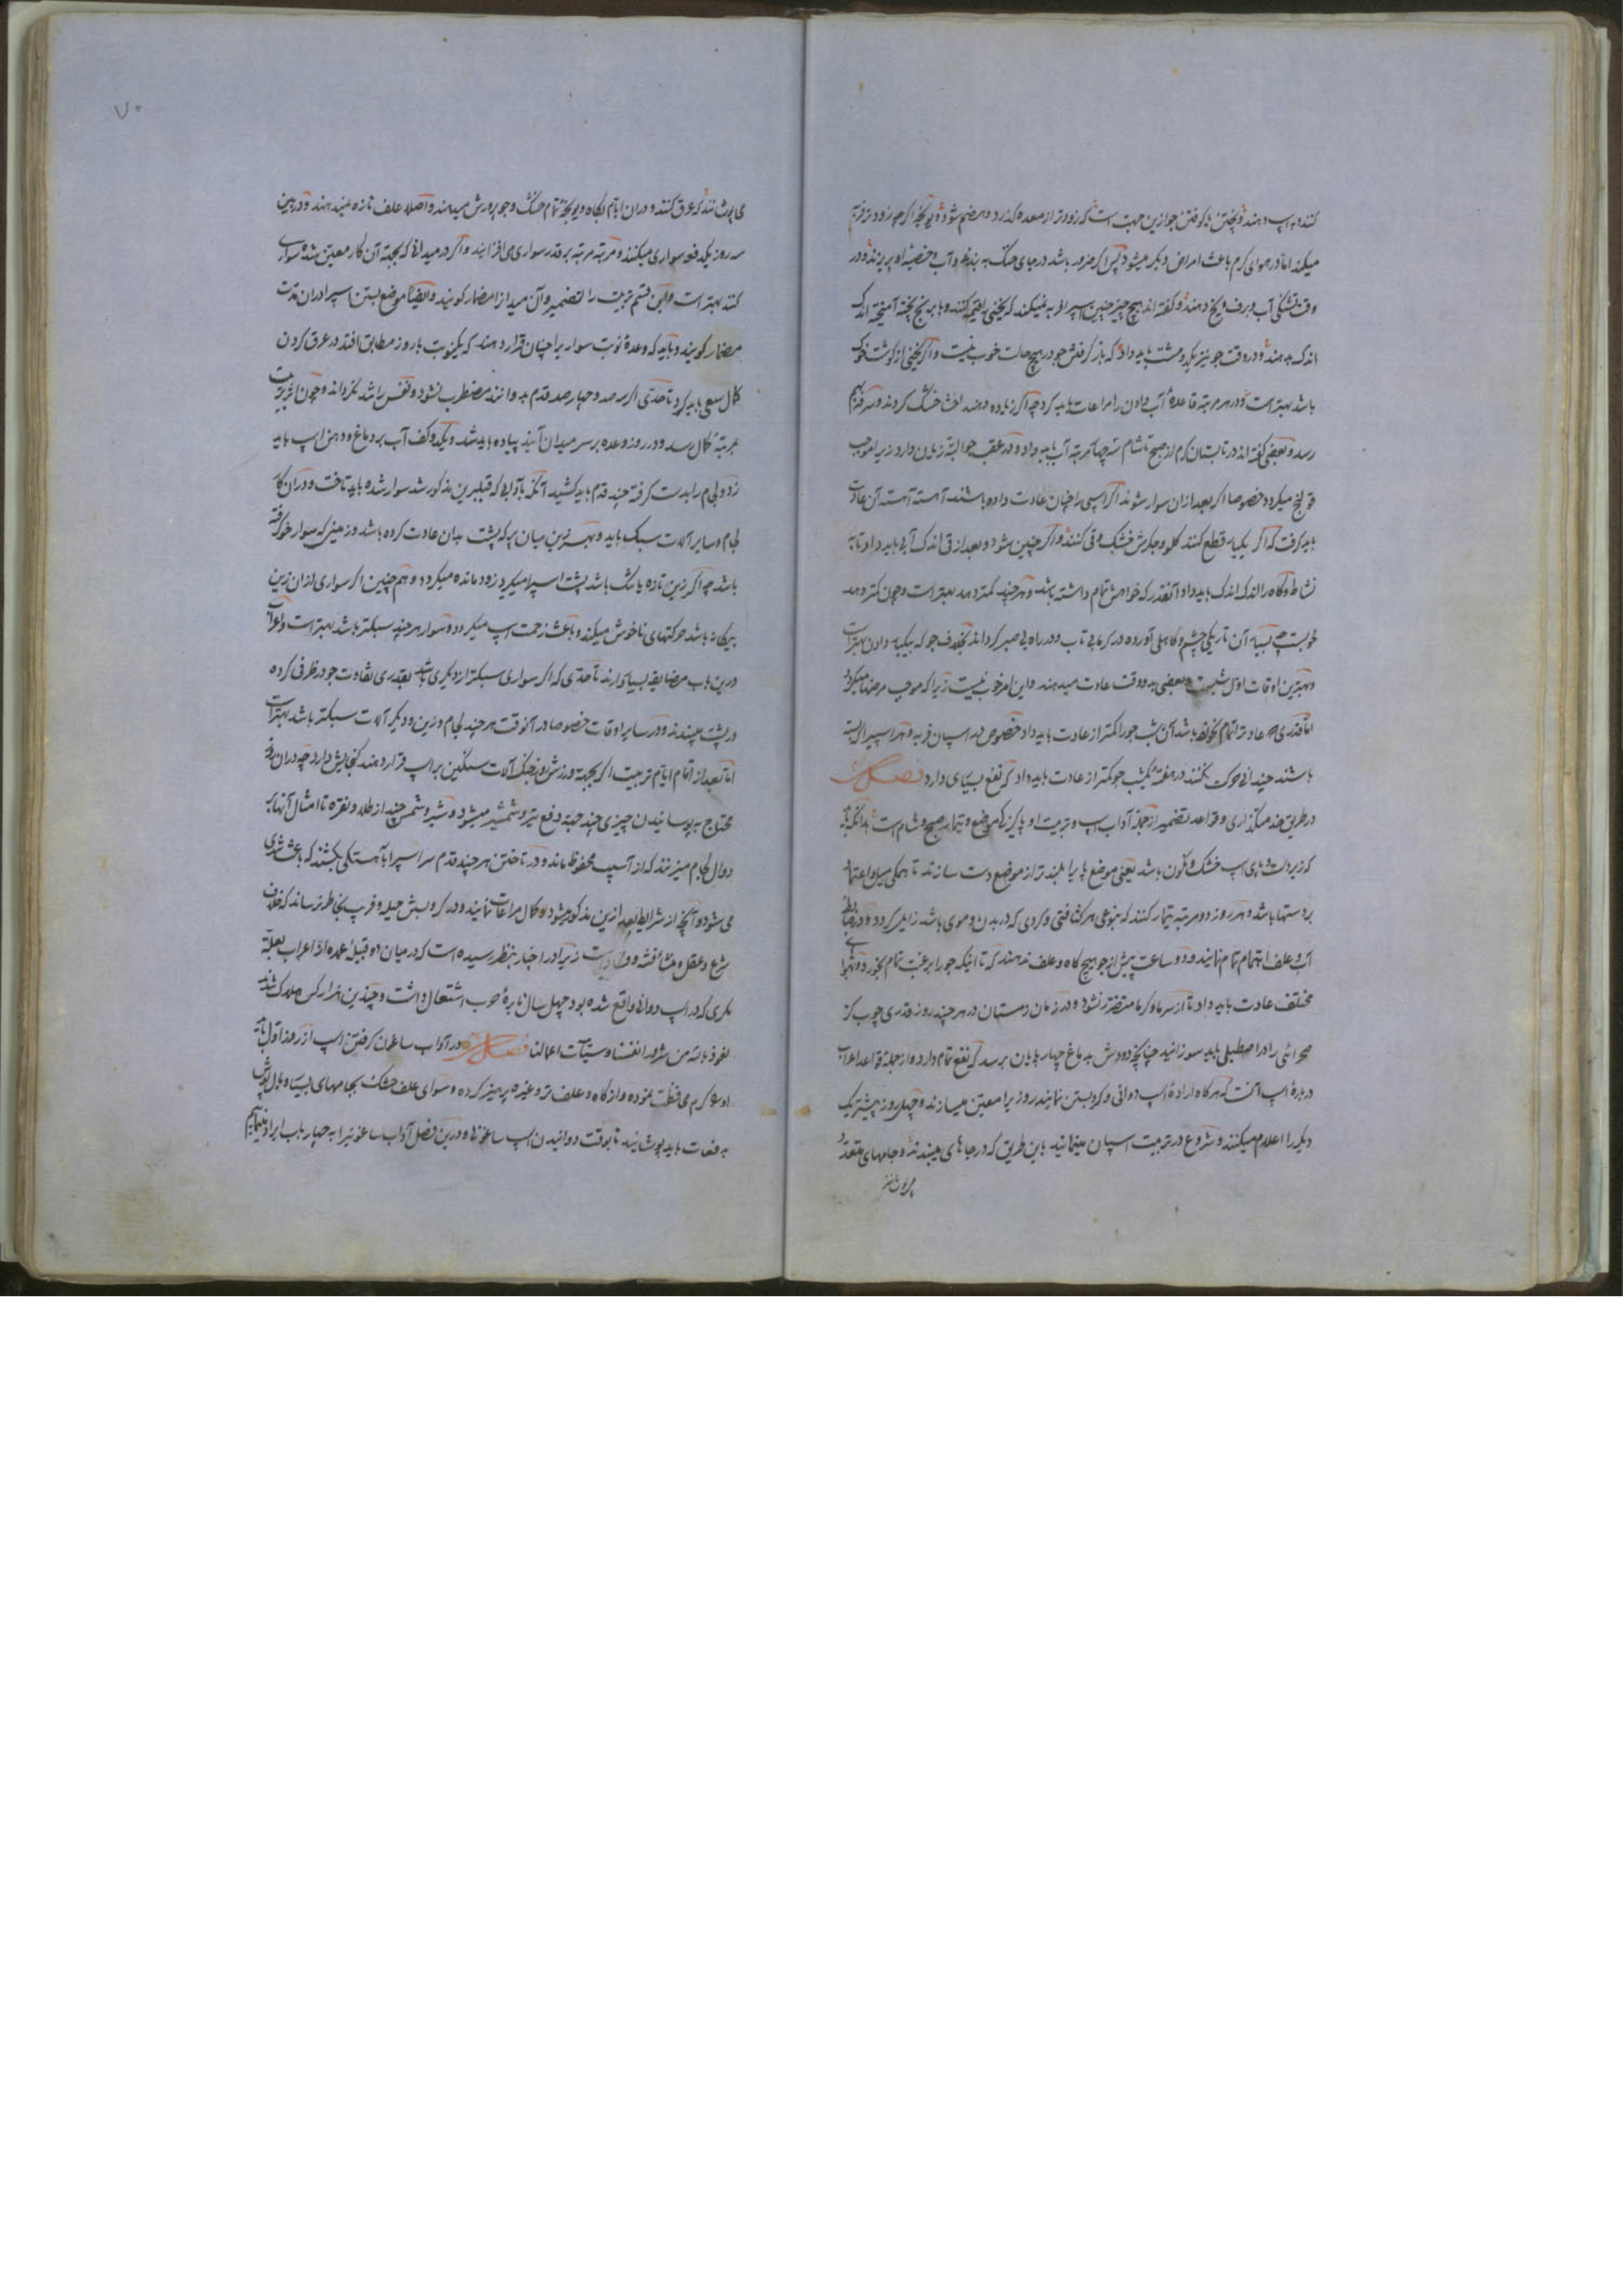 کنند به اسب دهند و پختن یا کوفتن جو ازین جهت است که زودتر از معده گذرد و هضم شود و یونجه اگرچه زودتر فربه
میکند اما در هوای گرم باعث امراض دیگر میشود پس اگر ضرور باشد در جای خنک به بندند و آب بر خصیه او بریزند و در
وقت تشنگی آب و برف و یخ دهند و گفته اند هیچ چیز چنین اسب را فربه نمیکند که یخنی را قیمه کنند و با برنج پخته آمیخته اندک
اندک بدهند و در وقت جو نیز یکدو مشت باید داد که باز گرفتن جو در هیچ حالت خوب نیست و اگر یخنی از گوشت خوک
باشد بهتر است و در هر مرتبه قاعدهٔ آب دادن را مراعات باید کرد چه اگر زیاده دهند احشا خشک گردند و سرفه بهم
رسد و بعضی گفته اند در تابستان گرم از صبح تا شام سه چهار مرتبه آب باید داد و در عقب جو البته زیان دارد زیرا موجب
قولنج میگردد خصوصا اگر بعد از آن سوار شوند اگر اسپی را چنان عادت داده باشند آهسته آهسته آن عادت
باید گرفت که اگر یکباره قطع کنند گلو و جگرش خشک و قی کنند و اگر چنین شود و بعد از قی اندک آبی باید داد تا به
نشاط و کاه را اندک اندک باید داد آنقدر که خواهش تمام داشته باشد و هرچند کمتر دهند بهتر است و چون کمتر دهند
خوبست چه بسیار آن تاریکی چشم و کاهلی آورده در گرما بی تاب و در راه بی صبر گرداند بخلاف جو که بیکبار دادن بهتر است
و بهترین اوقات اول شبست و بعضی به دو وقت عادت میدهند و این امر خوب نیست زیرا که موجب مرضها میگردد
اما قدری که عادت را تمام نخورد باشد آن شب جو را کمتر از عادت باید داد خصوص در اسپان فربه و هر اسپیرا که بسته
باشند چندانی حرکت نکنند در هفته یکشب جو کمتر از عادت باید داد که نفع بسیاری دارد فصل
در طریق خدمتگذاری و قواعد تضمیر از جمله آداب اسب و تربیت او پاکیزگی موضع و تیمار صبح و شام است بدانکه باید
که زیر دست و پای اسب خشک و نگون باشد یعنی موضع پا را بلندتر از موضع دست سازند تا همگی میل و اعتماد
بر دستها باشد و هر روز دو مرتبه تیمار کنند که بنوعی هر کثافتی و گردی که در بدن و موی باشد زایل گردد و در ضابطهٔ
آب و علف اهتمام تمام نمایند و دو ساعت پیش از جو هیچ کاه و علف ندهند که تا اینکه جو را برغبت تمام بخورد و بهوای
مختلف عادت باید داد تا از سرما و گرما متضرر نشود و در زمان زمستان در هر چند روز قدری چوب گز
صحرائی را در اصطبلی باید سوزانید چنانچه دودش به دماغ چهار پایان برسد که نفع تمام دارد و از جمله قواعد اعراب
دربارهٔ اسب آنست که هرگاه ارادهٔ اسپ دوانی و گرو بستن نمایند روز را معین میسازند و چهل روز پیشتر یک
دیگر را اعلام میکنند و شروع در تربیت اسپان مینمایند باین طریق که در جاهای میبندند و جلهای متعدد
می پوشانند
۷۰
می پوشانند که عرق کنند و در آن ایام بکاه و یونجه تمام خشک و جو پرورش میدهند و اصلا علف تازه نمیدهند و در بین
سه روز یکدفعه سواری میکنند و مرتبه مرتبه بر قدر سواری می افزایند و اگر در میدانی که بجهة آن کار معین شده سواری
کنند بهتر است و این قسم تربیت را تضمیر و آن میدان را مضمار گویند و ایضا موضع بستن اسپ را در آن مدت
مضمار گویند و باید که وعدهٔ نوبت سواری را چنان قرار دهند که یکنوبت با روز مطابق افتد در عرق کردن
کمال سعی باید کرد تا حدی اگر سیصد و چهار صد قدم بدوانند مضطرب نشود و نفس را شد نگرداند و چون این تربیت
بمرتبهٔ کمال رسد و در روز وعده بر سر میدان آیند پیاده باید شد و یکدو کف آب بر دماغ و دهن اسپ باید
زد و لجام را بدست گرفته چند قدم باید کشید آنگه بآدابی که قبل برین مذکور شد سوار شده باید تاخت و در آن کار
لجام و سایر آلات سبک باید و بهترین میان پر که پشت بدان عادت کرده باشد و زمینی که سوار خو گرفته
باشد چه اگر زین تازه یا تنگ باشد پشت اسپ را میگیرد زود مانده میگردد و هم چنین اگر سواری از آن زین
بیگانه باشد حرکتهای ناخوش میکند و باعث زحمت اسپ میگردد و سوار هرچند سبکتر باشد بهتر است و اعراب
درین باب مضایقه بسیار دارند تا حدی که اگر سواری سبکتر از دیگری باشد بقدری تفاوت جو در ظرفی کرده
در پشت میبندند و در سایر اوقات خصوصا در آنوقت هرچند لجام و زین و دیگر آلات سبکتر باشد بهتر است
اما بعد از اتمام ایام تربیت اگر بجهة ورزش روز جنگ آلات سنگین بر اسپ قرار دهند گنجایش دارد چه در آن روز
محتاج بپوسانیدن چیزی چند جهة دفع تیر و شمشیر میشود و شیر و شمس چند از طلا و نقره تا امثال آنها به
دوال لجام میزنند که از آسیب محفوظ ماند و در تاختن هر چند قدم سر اسپ را بآهستگی بکشند که باعث تندی
می شود و آنچه از شرایط بعد ازین مذکور میشود کمال مراعات نمایند و در گرو بستن حیله و فریب بخاطر نرسانند که خلاف
شرع و عقل و منشأ فتنه و فساد است زیرا در اخبار بنظر رسیده است که در میان دو قبیلهٔ عمده از اعراب بعلة
مکری که در اسپ دوانی واقع شده بود چهل سال نایرهٔ حرب اشتعال داشت و چندین هزار کس هلاک شدند
نعوذ بالله من شرور انفسنا و سیئات اعمالنا فصل در آداب ساغون گرفتن اسپ از روز اول باید
او را گرم محافظت نموده و از کاه و علف تر و غیره پرهیز کرده و سوای علف خشک بجامهای بسیار و بال پوش
به دفعات باید پوشانید تا بوقت دوانیدن اسپ ساغونی و درین فصل آداب ساغونی را به چهار باب ایراد مینمایم